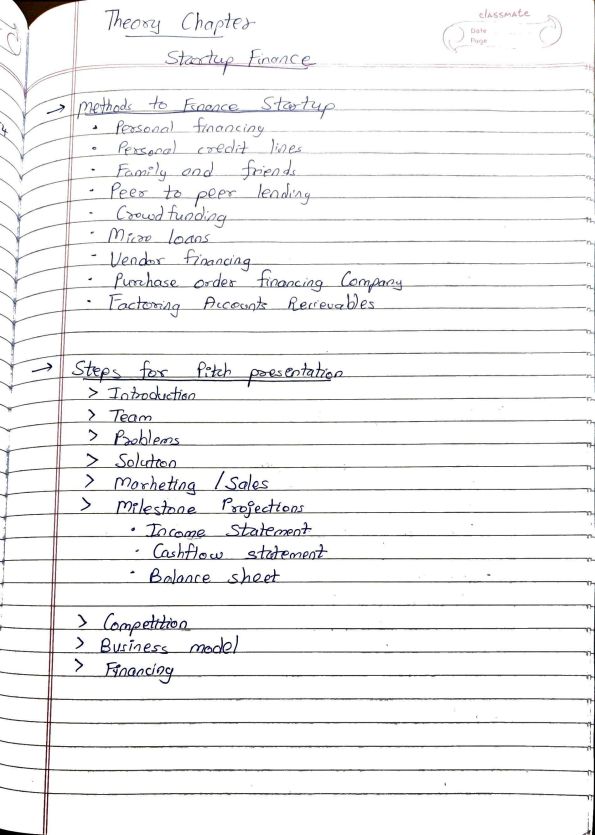 Theory Chapter
classmate
Date
Page
Startup Finance
→ Methods to Finance Startup
• Personal financing
• Personal credit lines
• Family and friends
• Peer to peer lending
• Crowdfunding
• Micro loans
• Vendor financing
• Purchase order financing Company
• Factoring Accounts Recievables
→ Steps for Pitch presentation
> Introduction
> Team
> Problems
> Solution
> Marketing / Sales
> Milestone Projections
• Income Statement
• Cashflow statement
• Balance sheet
> Competition
> Business model
> Financing